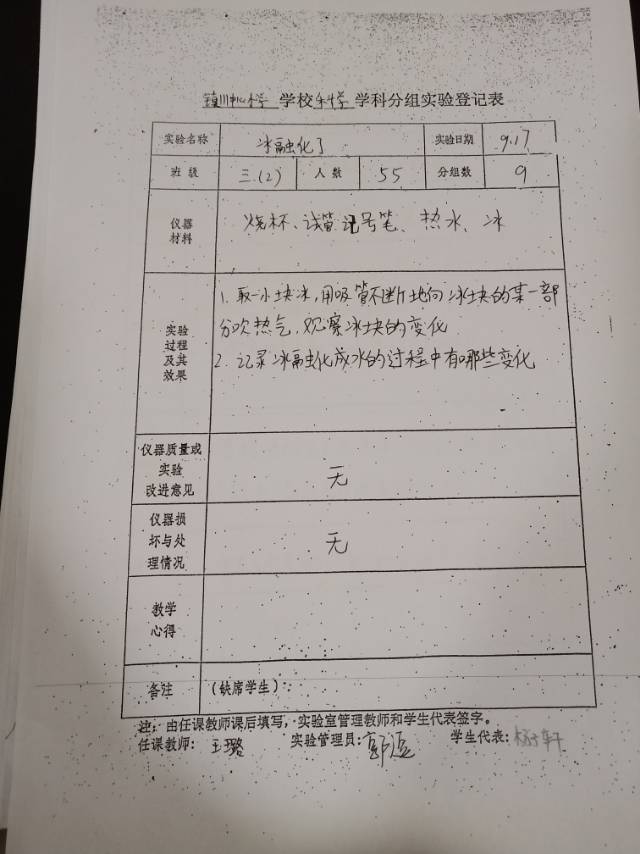 镇川中心小学 学校 科学 学科分组实验登记表
实验名称 冰融化了 实验日期 9.17
班 级 三.(2) 人 数 55 分组数 9
仪器材料 烧杯、试管、记号笔、热水、冰
实验过程及其效果
1. 取一小块冰,用吸管不断地向冰块的某一部
分吹热气,观察冰块的变化
2. 记录冰融化成水的过程中有哪些变化
仪器质量或实验改进意见 无
仪器损坏与处理情况 无
教学心得
备注 (缺席学生):
注:由任课教师课后填写,实验室管理教师和学生代表签字。
任课教师: 王璐 实验管理员: 学生代表: